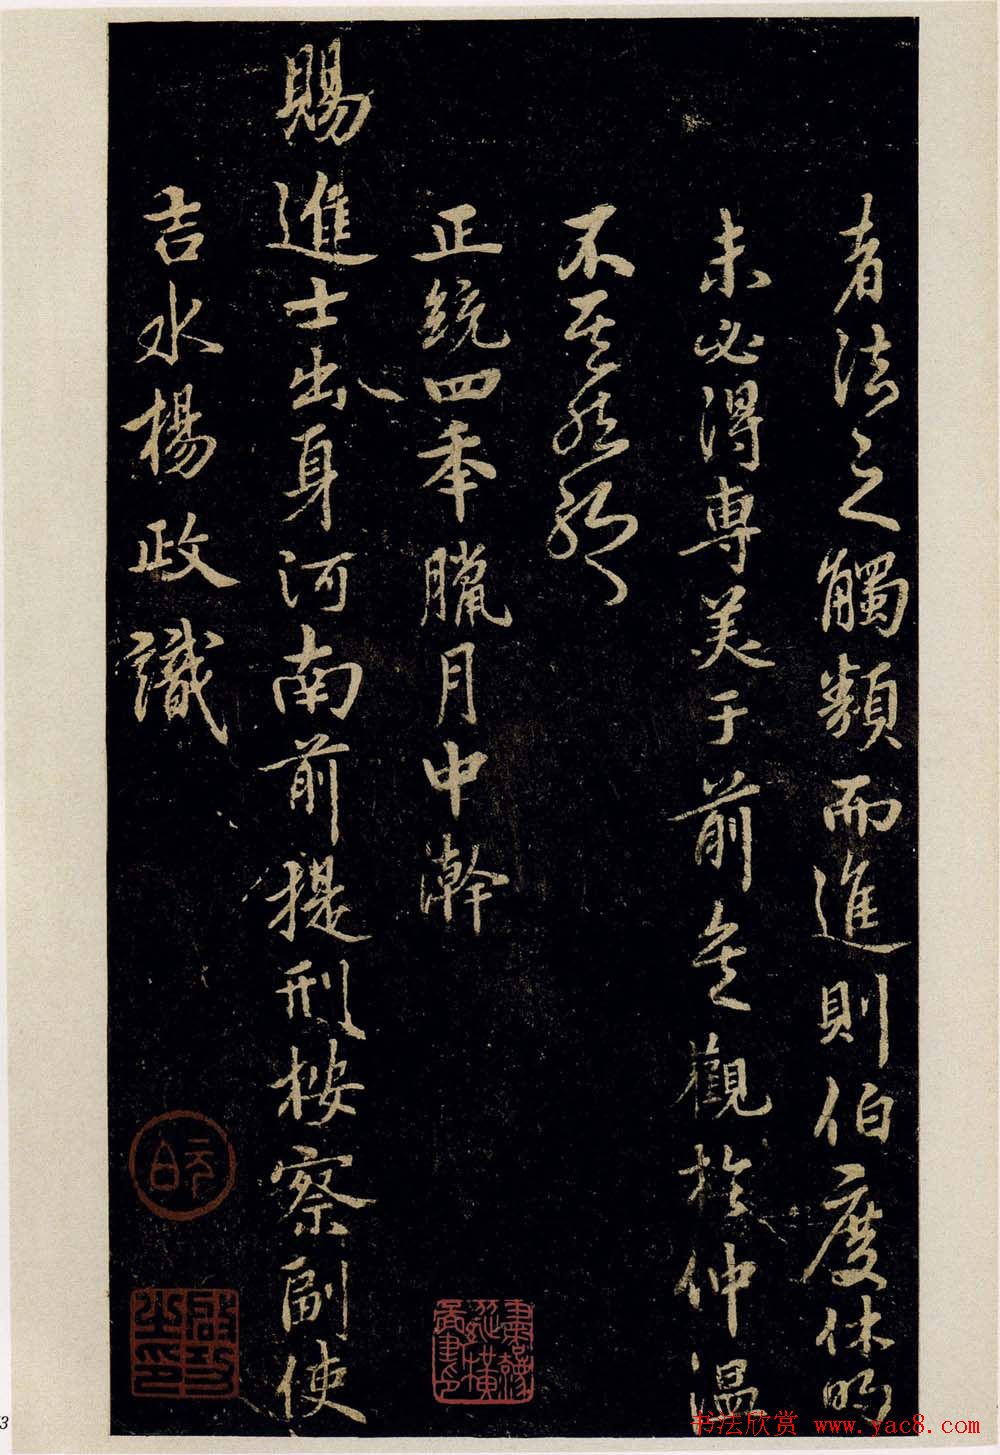 者法之觸類而進則伯度休明
未必得専美于前矣觀於仲温
不其然耶
正統四年臘月中澣
賜進士出身河南前提刑按察副使
吉水楊政識
書法欣赏 www.yac8.com
3